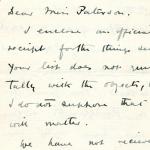 Dear Miss Paterson.
I enclose an official
receipt for the things
Your list does not
tally with the objects,
I do not suppose that
will matter.
We have not